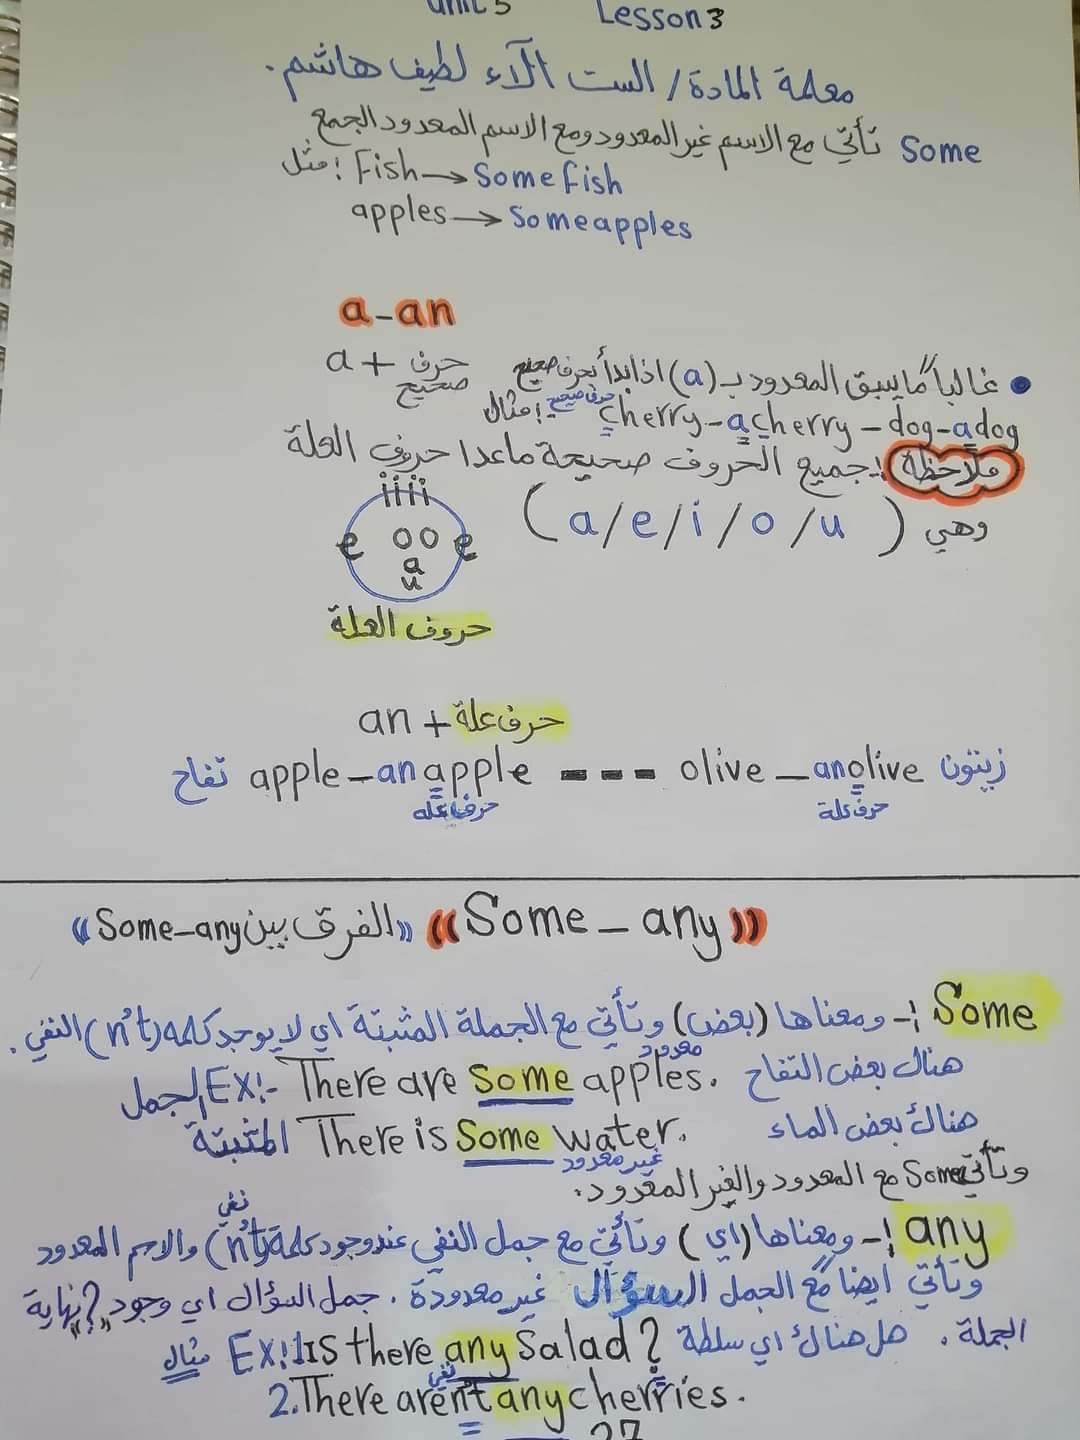 Unit 5 Lesson 3
معلمة المادة / الست آلاء لطيف هاشم.
Some تأتي مع الاسم غير المعدود ومع الاسم المعدود الجمع
مثل: Fish → Some fish
apples → Some apples
a - an
a + حرف صحيح
• غالباً ما يسبق المعدود بـ (a) اذا بدأ بحرف صحيح
مثال: cherry - a cherry - dog - a dog
حرف صحيح
ملاحظة :- جميع الحروف صحيحة ماعدا حروف العلة
وهي (a / e / i / o / u)
i i i i
e o o e
a
u
حروف العلة
an + حرف علة
تفاح apple - an apple --- olive - an olive زيتون
حرف عله حرف علة
((Some - any)) «الفرق بين Some - any»
Some :- ومعناها (بعض) وتأتي مع الجملة المثبتة اي لا يوجد كلمه (n't) النفي.
معدود
الجمل Ex:- There are Some apples. هناك بعض التفاح
المثبتة There is Some water. هناك بعض الماء
غير معدود
وتأتي Some مع المعدود والغير المعدود.
نفي
any :- ومعناها (اي) وتأتي مع جمل النفي عند وجود كلمة (n't) والاسم المعدود
وتأتي ايضا مع الجمل السؤال غير معدودة. جمل السؤال اي وجود "?" نهاية
الجملة. هل هناك اي سلطة Ex:1 Is there any Salad? مثال
نفي
2. There aren't any cherries.
27